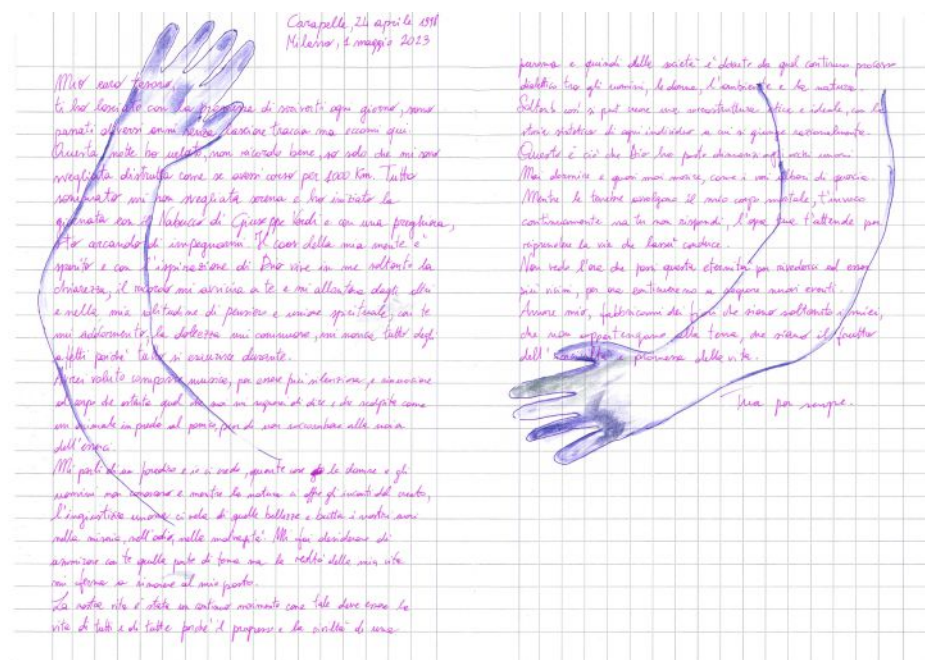 Carapelle, 24 aprile 1998
Milano, 1 maggio 2023
Mio caro tesoro,
ti ho lasciato con la promessa di scriverti ogni giorno, sono
passati diversi anni senza lasciare traccia ma eccomi qui.
Questa notte ho volato, non ricordo bene, so solo che mi sono
svegliata distrutta come se avessi corso per 1000 Km. Tutto
sommato mi son svegliata serena e ho iniziato la
giornata con il Nabucco di Giuseppe Verdi e con una preghiera,
sto cercando di impegnarmi. Il caos della mia mente è
sparito e con l'ispirazione di Dio vive in me soltanto la
chiarezza, il ricordo mi avvicina a te e mi allontana dagli altri
e nella mia solitudine di pensiero e unione spirituale, con te
mi addormento, la dolcezza mi commuove, mi manca tutto degli
affetti perché tutto si esaurisce durante.
Avrei voluto comporre musica, per essere più silenziosa, e rinunciare
al corpo che ostenta quel che non in segreto di dice e che scalpita come
un animale in preda al panico, pur di non soccombere alla noia
dell'ovvio.
Mi parli di un paradiso e io ci credo, quante cose le donne e gli
uomini non conoscono e mentre la natura ci offre gli incanti del creato,
l'ingiustizia umana ci vela di quelle bellezze e butta i nostri cuori
nella miseria, nell'odio, nelle malvagità. Mi fai desiderare di
ammirare con te quella parte di terra ma la realtà della mia vita
mi ferma a rimanere al mio posto.
La nostra vita è stata un continuo movimento come tale deve essere la
vita di tutti e di tutte perché il progresso e la civiltà di una
persona e quindi delle società è dovuto da quel continuo processo
dialettico tra gli uomini, le donne, l'ambiente e la natura.
Soltanto così si può creare una sovrastruttura etica e ideale, con la
storia statistica di ogni individuo a cui si giunge razionalmente.
Questo è ciò che Dio ha posto dinnanzi agli occhi umani.
Mai dormire e quasi mai morire, come i vasi di guerra.
Mentre le tenebre avvolgono il mio corpo mortale, t'invoco
continuamente ma tu non rispondi, l'opera che t'attende per
riprendere la via che lassù conduce.
Non vedo l'ora che passi questa eternità per rivederci ed esser
più vicini, per ora continueremo a seguire nuovi eventi.
Amore mio, fabbricami dei figli che siano soltanto amici,
che non appartengano alla terra, che siano il frutto
dell' promessa della vita.
Tua per sempre.